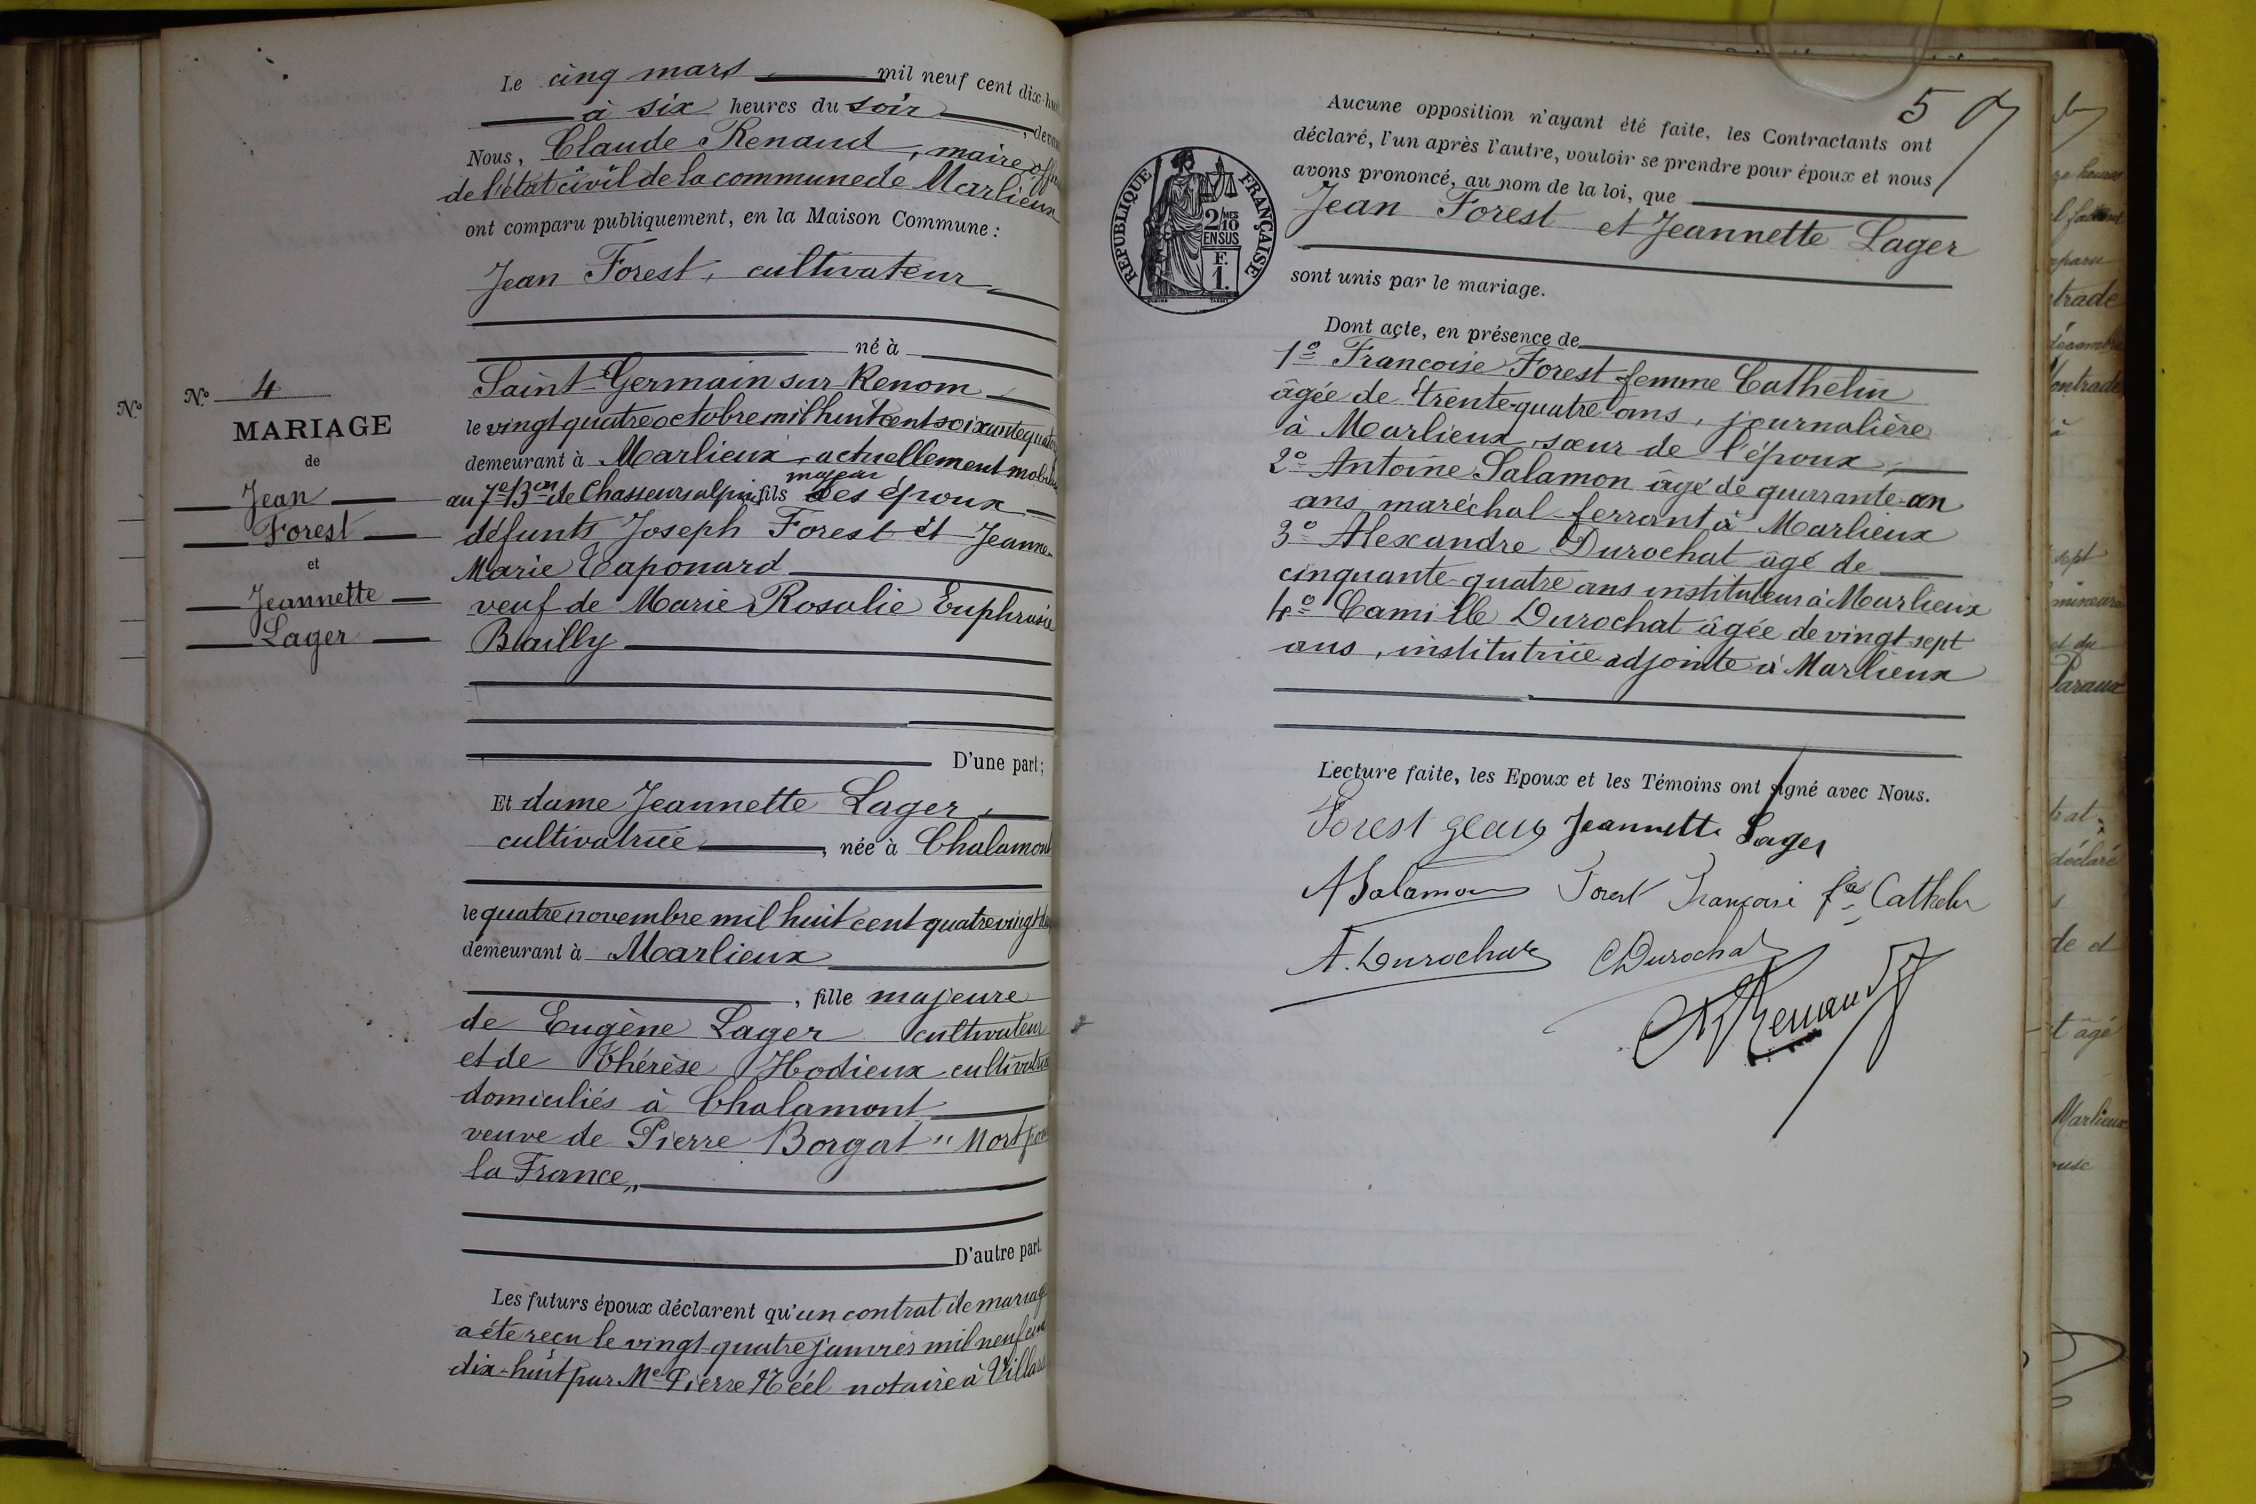 Le cinq mars mil neuf cent dix-hu
à six heures du soir, deva
Nous, Claude Renaud, maire off
de l'état civil de la commune de Marlieux
ont comparu publiquement, en la Maison Commune :
Jean Forest, cultivateur
né à
Saint-Germain sur Renom
le vingt quatre octobre mil huit cent soixante quato
demeurant à Marlieux, actuellement mobil
majeur
au 7e Bon de Chasseurs alpins fils des époux
défunts Joseph Forest et Jeanne-
Marie Taponard
veuf de Marie Rosalie Euphrasie
Bailly
D'une part ;
Et dame Jeannette Lager,
cultivatrice, née à Chalamont
le quatre novembre mil huit cent quatre vingt
demeurant à Marlieux
, fille majeure
de Eugène Lager cultivateur
et de Thérèse Hodieux cultivatrice
domiciliés à Chalamont
veuve de Pierre Borgat " Mort pour
la France "
D'autre part.
Les futurs époux déclarent qu'un contrat de mariage
a été reçu le vingt-quatre janvier mil neuf cent
dix-huit par Me Pierre Néel notaire à Villars
No
No 4
MARIAGE
de
Jean
Forest
et
Jeannette
Lager
5
Aucune opposition n'ayant été faite, les Contractants ont
déclaré, l'un après l'autre, vouloir se prendre pour époux et nous
avons prononcé, au nom de la loi, que
Jean Forest et Jeannette Lager
sont unis par le mariage.
RÉPUBLIQUE FRANÇAISE
2/10 MES
EN SUS
F.
1.
Dont acte, en présence de
1o Françoise Forest femme Cathelin
âgée de trente-quatre ans, journalière
à Marlieux, sœur de l'époux,
2o Antoine Salamon âgé de quarante-un
ans maréchal-ferrant à Marlieux
3o Alexandre Durochat âgé de
cinquante-quatre ans instituteur à Marlieux
4o Camille Durochat âgée de vingt sept
ans, institutrice adjointe à Marlieux
Lecture faite, les Epoux et les Témoins ont signé avec Nous.
Forest Jean Jeannette Lager
A Salamon Forest Françoise fe Cathelin
A. Durochat C Durochat
Renaud